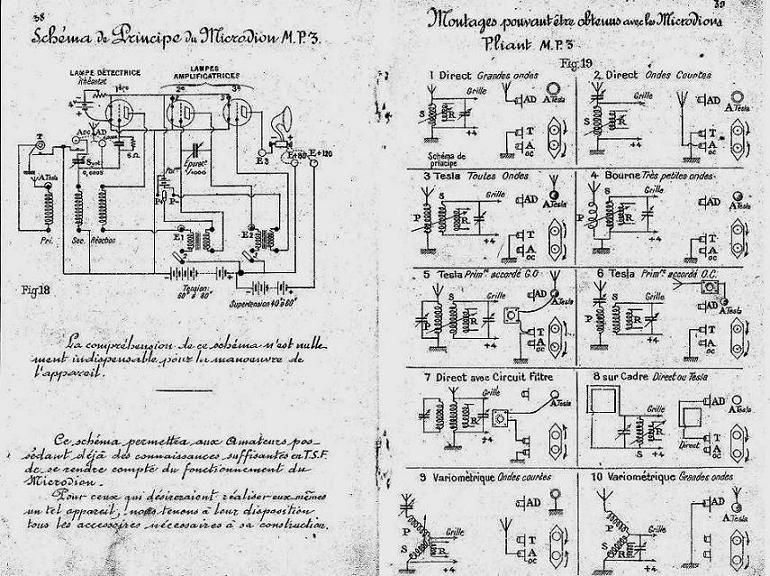 38
Schéma de Principe du Microdion M.P.3.
LAMPE DÉTECTRICE
Rhéostat
LAMPES
AMPLIFICATRICES
1ère
2e
3e
4v
T
Acc
AD
A.Tesla
0,0005
5Ω
Pot
1/1000
E3
E+80
E+120
P-
P+
E1
E2
Pri.
Sec.
Réaction
Tension
60v à 80v
Supertension 40 à 60v
Fig.18
La compréhension de ce schéma n'est nulle-
ment indispensable pour la manœuvre de
l'appareil.
Ce schéma permettra aux Amateurs pos-
sédant déjà des connaissances suffisantes en T.S.F.
de se rendre compte du fonctionnement du
Microdion.
Pour ceux qui désireraient réaliser eux-mêmes
un tel appareil, nous tenons à leur disposition
tous les accessoires nécessaires à sa construction.
39
Montages pouvant être obtenus avec les Microdions
Pliant M.P.3
Fig.19
1 Direct Grandes ondes
Grille
S
R
AD
A Tesla
T
A
OC
Schéma de
principe
2 Direct Ondes Courtes
Grille
S
R
AD
A Tesla
T
A
OC
3 Tesla Toutes Ondes
S
Grille
P
R
+4
AD
A Tesla
T
A
OC
4 Bourne Très petites ondes
S
Grille
P
R
+4
AD
A Tesla
T
A
OC
5 Tesla Primre accordé G.O
S
Grille
P
R
+4
AD
A Tesla
T
A
OC
6 Tesla Primre accordé O.C.
S
Grille
P
R
+4
AD
A Tesla
T
A
OC
7 Direct avec Circuit Filtre
A Tesla
8 sur Cadre Direct ou Tesla
Grille
S
R
+4
A Tesla
Direct
9 Variométrique Ondes courtes
P
Grille
S
+4
AD
T
A
OC
10 Variométrique Grandes ondes
P
Grille
S
+4
AD
A Tesla
T
A
OC